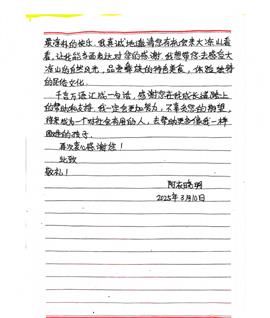 最淳朴的快乐。我真诚地邀请您有机会来大凉山看
看,让我能当面表达对您的感谢。我想带您去感受大
凉山的自然风光,品尝彝族的特色美食,体验独特
的民俗文化。
千言万语汇成一句话,感谢您在我成长道路上
的帮助和支持。我一定会更加努力,不辜负您的期望,
将来成为一个对社会有用的人,去帮助更多像我一样
困难的孩子。
再次衷心感谢您!
此致
敬礼!
阿衣晓明
2025年3月10日